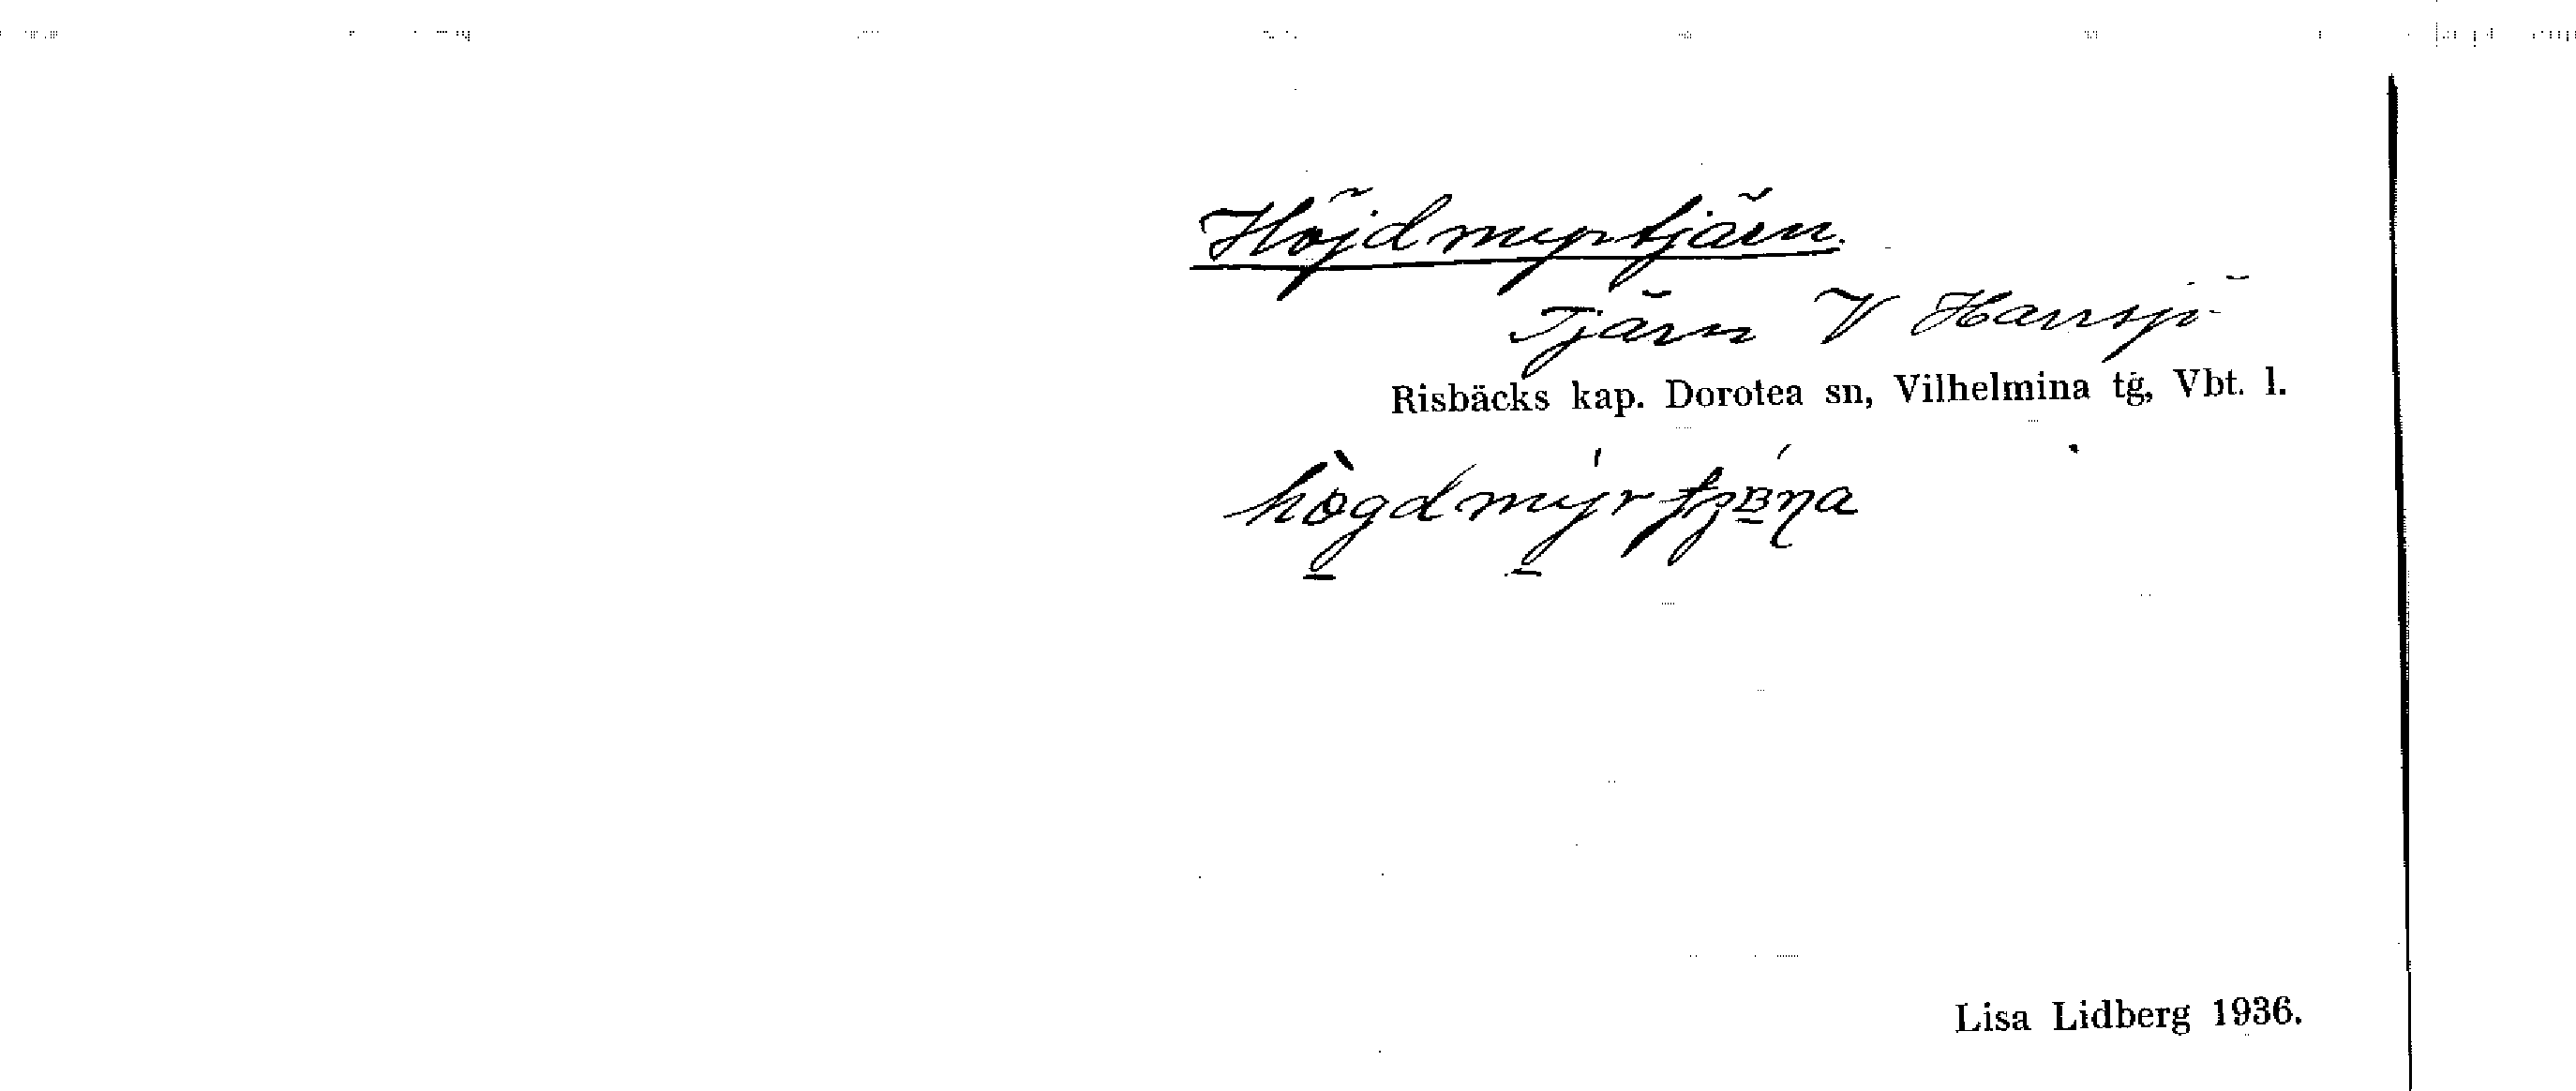 Höjdmyrtjärn.
Tjärn V Hansjö
Risbäcks kap. Dorotea sn, Vilhelmina tg, Vbt. l.
Lisa Lidberg 1936.